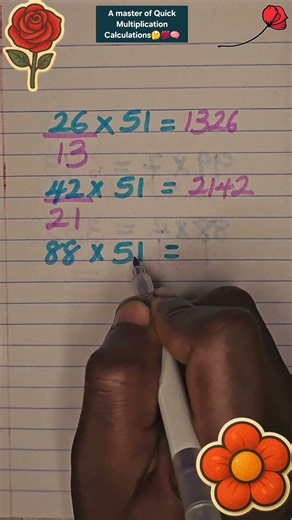 A master of Quick
Multiplication
Calculations🤔💯🧠
26 × 51 = 1326
13
42 × 51 = 2142
21
88 × 51 =